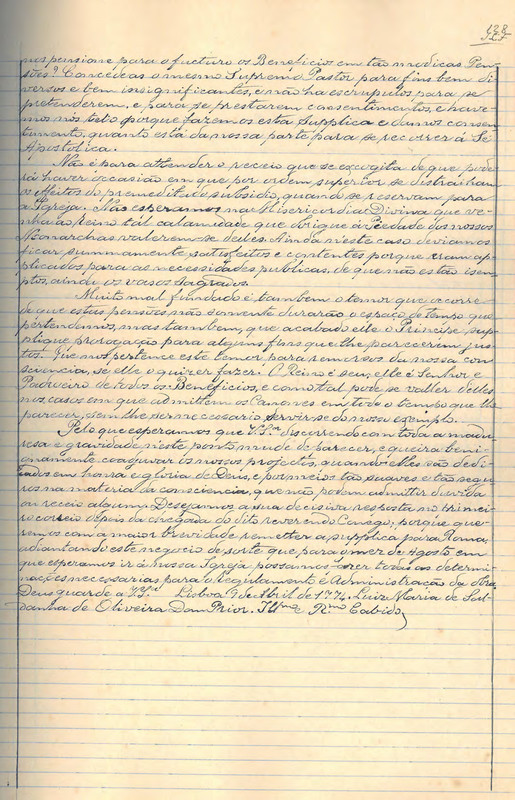 nos pensione para o fucturo os Beneficios em tão modicas Pen-
sões? Concede as o mesmo Supremo Pastor para fins bem di-
versos e bem insignificantes, e não ha escrupulos para se
pretenderem, e para se prestarem consentimentos, e have-
mos nós tel-o porque fazemos esta Supplica e damos consen-
timento, quanto está da nossa parte para se recorrer á Sé
Apostolica.
Não é para attender o receio que se excogita de que pode-
rá haver occasião em que por ordem superior se distraiham
os effeitos do premeditado subsidio, quando se reservam para
a Igreja. Não esperamos na Misericordia Divina que ve-
nha ao Reino tál calamidade que obrigue á Piedade dos nossos
Monarchas valerem-se delles. Ainda n'este caso deviamos
ficar summamente satisfeitos e contentes porque eram ap-
plicados para as necessidades publicas, de que não estão isem-
ptos, ainda os vasos Sagrados.
Muito mal fundado é tambem o temor que occorre
de que estas pensões não somente durarão o espaço de tempo que
pertendemos, mas tambem, que acabado elle o Principe sup-
plique prorogação para alguns fins que lhe parecerem jus-
tos. Que nos pertence este temor para remorsos da nossa con-
sciencia, se elle o quizer fazer? O Reino é seu, elle é Senhor e
Padroeiro de todos os Beneficios, e como tal pode se valler delles
nos casos em que admittem os Canones em todo o tempo que lhe
parecer, sem lhe ser necessario servir-se do nosso exemplo.
Pelo que esperamos que V. S.ª discorrendo com toda a madu-
resa e gravidade n'este ponto mude de parecer, e queira beni-
gnamente coadjuvar os nossos projectos, quando elles são dedi-
cados em honra e gloria de Deus, e por meios tão suaves e tão segu-
ros na materia da consciencia, que não podem admittir duvida
ou receio algum. Desejamos a sua decisiva resposta no primei-
ro correio depois da chegada do dito reverendo Conego, porque que-
remos com a maior brevidade remetter a supplica para Roma,
adiantando este negocio de sorte que para o mez de Agosto em
que esperamos ir á nossa Igreja possamos fazer todas as determi-
nações neccosarias para o Regulamento e Administração da obra.
Deus guarde a V. S.ª Lisboa 9 de Abril de 1774. Luiz Maria de Sal-
danha de Oliveira Dom Prior. Ill.mo e R.mo Cabido